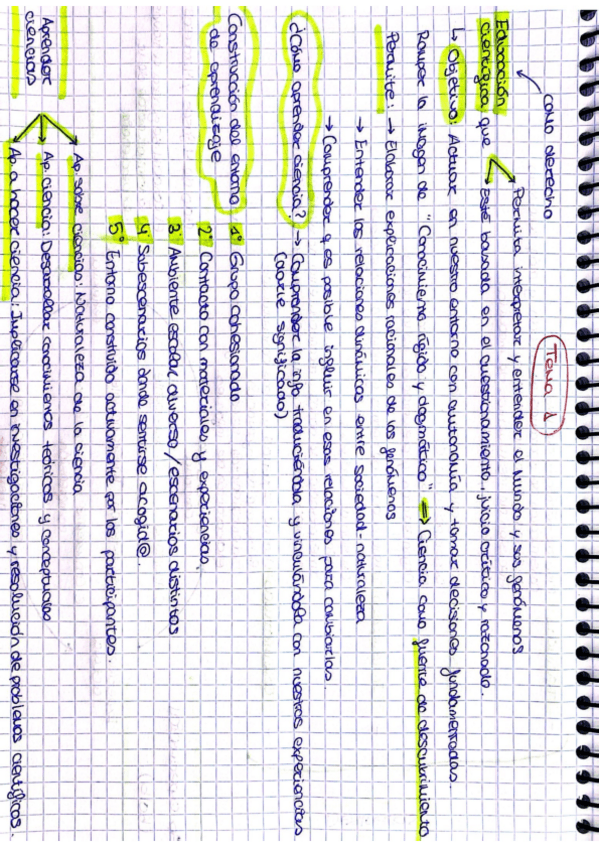 Tema 1
como derecho
Educación científica que
Permita interpretar y entender el mundo y sus fenómenos
esté basada en el cuestionamiento, juicio crítico y razonado.
↳ Objetivo: Actuar en nuestro entorno con autonomía y tomar decisiones fundamentadas.
Romper la imagen de "Conocimiento rígido y dogmático" ⇒ Ciencia como fuente de descubrimiento
Permite: → Elaborar explicaciones racionales de los fenómenos
→ Entender las relaciones dinámicas entre sociedad-naturaleza
→ Comprender q es posible influir en esas relaciones para cambiarlas.
¿Cómo aprender ciencia? → Comprender la info traduciéndola y vinculándola con nuestras experiencias
(darle significado)
Construcción del entorno
de aprendizaje
1º Grupo cohesionado
2º Contacto con materiales y experiencias.
3º Ambiente escolar diverso / escenarios distintos
4º Subescenarios donde sentirse acogid@.
5º Entorno construido activamente por los participantes.
Aprender
ciencias
Ap. sobre ciencias: Naturaleza de la ciencia
Ap. ciencia: Desarrollar conocimientos teóricos y conceptuales
Ap. a hacer ciencia: Implicarse en investigaciones y resolución de problemas científicos.